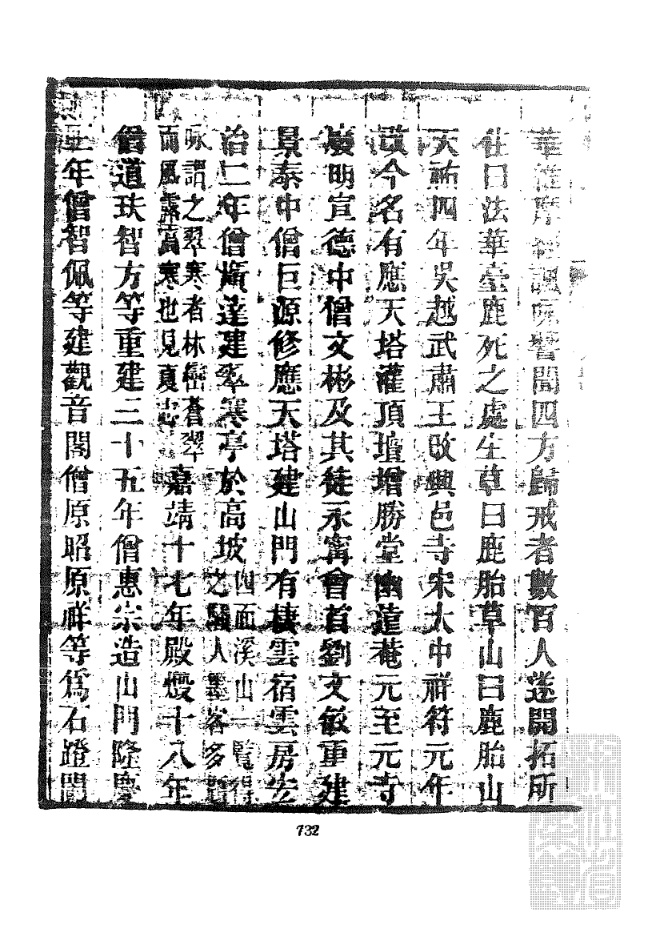 華維摩經諷咏響聞四方歸戒者數百人遂開拓所
住曰法華臺鹿死之處生草曰鹿胎草山曰鹿胎山
天祐四年吳越武肅王改興邑寺宋大中祥符元年
改今名有應天塔灌頂壇增勝堂幽遠菴元至元寺
廢明宣德中僧文彬及其徒永寧會首劉文敏重建
景泰中僧巨源修應天塔建山門有棲雲宿雲房宏
治二年僧廣達建翠寒亭於高坡四面溪山一覽得之騷人墨客多題
咏謂之翠寒者林巒蒼翠而風露高寒也見夏志嘉靖十七年殿燬十八年
僧道玞智方等重建三十五年僧惠宗造山門隆慶
二年僧智佩等建觀音閣僧原昭原祥等爲石蹬門
732